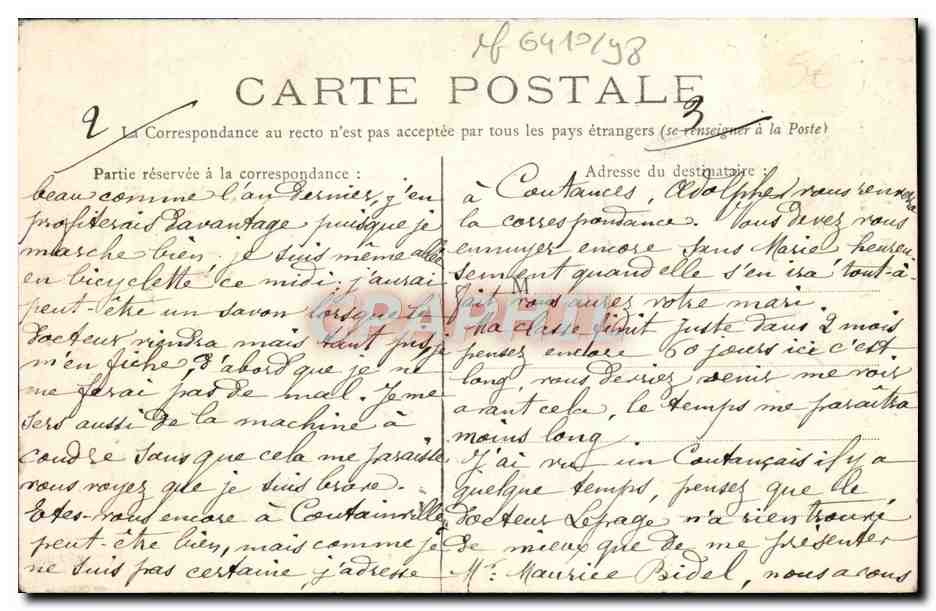 Mf 6410/98
5€
CARTE POSTALE
2
3
La Correspondance au recto n'est pas acceptée par tous les pays étrangers (se renseigner à la Poste)
Partie réservée à la correspondance :
beau comme l'an dernier, j'en
profiterais davantage puisque je
marche bien. je suis même allée
en bicyclette ce midi; j'aurai
peut-être un savon lorsque le
docteur viendra mais tant pis, je
m'en fiche, d'abord que je ne
me ferai pas de mal. Je me
sers aussi de la machine à
coudre sans que cela me paraisse
vous voyez que je suis brave.
Etes-vous encore à Coutainville,
peut-être bien, mais comme je
ne suis pas certaine, j'adresse
Adresse du destinataire :
à Coutances, Adolphe vous renverra
la correspondance. Vous devez vous
ennuyer encore sans Marie heureu-
sement quand elle s'en ira tout-à-
M
fait vous aurez votre mari.
Ma classe finit juste dans 2 mois
pensez encore 60 jours ici c'est
long, vous devriez venir me voir
avant cela, le temps me paraîtra
moins long.
J'ai vu un Coutançais il y a
quelque temps, pensez que le
docteur Lepage n'a rien trouvé
de mieux que de me présenter
Mr. Maurice Bidel, nous avons
CPAPHIL